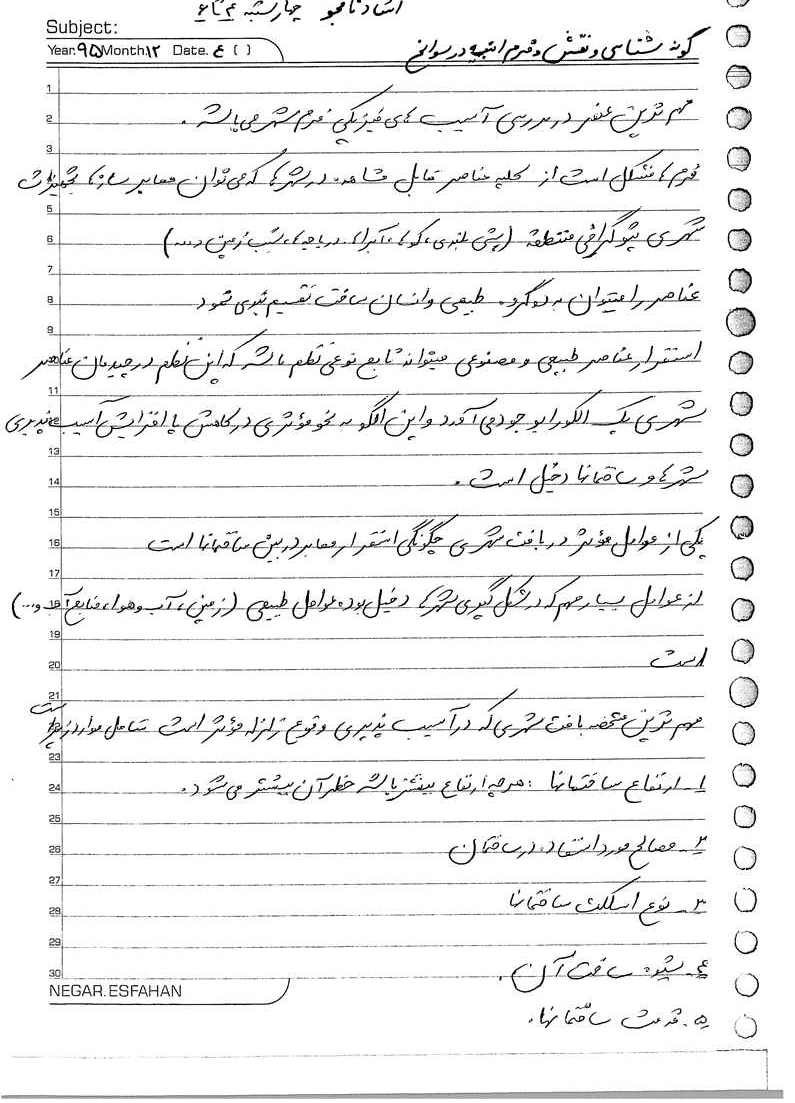 استاد نامجو چهارشنبه ۴ تا ۶
Subject:
Year. ۹۵ Month. ۱۲ Date. ۴ ( )
گونه شناسی و نقش و فرم ابنیه در سوانح
مهم ترین عنصر در بررسی آسیب های فیزیکی فرم شهر می باشد.
فرم ها متشکل است از کلیه عناصر قابل مشاهده در شهر ها که می توان معابر سازه ها تجهیزات
شهری توپوگرافی منطقه (پستی بلندی، کوه ها، آبراه، دریاچه ها، شیب زمین و...)
عناصر را میتوان به دو گروه طبیعی و انسان ساخت تقسیم بندی نمود
استقرار عناصر طبیعی و مصنوعی میتواند تابع نوعی نظم باشد که این نظم در چیدمان عناصر
شهری یک الگو را بوجود می آورد و این الگو به نحو مؤثری در کاهش یا افزایش آسیب پذیری
شهر ها و ساختمانها دخیل است.
یکی از عوامل مؤثر در بافت شهری چگونگی استقرار معابر در بین ساختمانها است
از عوامل بسیار مهم که در شکل گیری شهر ها دخیل بوده عوامل طبیعی (زمین، آب و هوا، منابع آب و...)
است
مهم ترین مشخصه بافت شهری که در آسیب پذیری وقوع زلزله مؤثر است شامل موارد زیر است
۱_ ارتفاع ساختمانها : هر چه ارتفاع بیشتر باشد خطر آن بیشتر می شود.
۲_ مصالح مورد استفاده در ساختمان
۳_ نوع اسکلت ساختمانها
۴_ شیوه ساخت آن.
۵. قدمت ساختمانها.
1
2
3
5
6
7
8
9
11
13
14
15
16
17
19
20
21
23
24
25
26
27
28
29
30
NEGAR.ESFAHAN